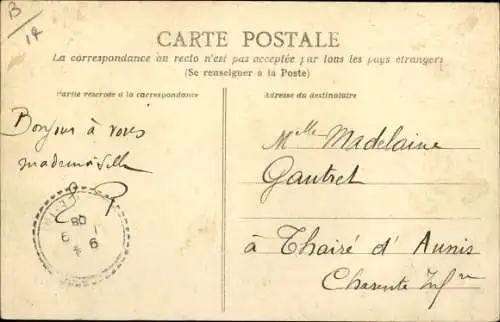 B
12
CARTE POSTALE
La correspondance au recto n'est pas acceptée par tous les pays étrangers
(Se renseigner à la Poste)
Partie réservée à la correspondance
Adresse du destinataire
Bonjour à vous
mademoiselle
Mlle Madelaine
Gautret
à Thairé d'Aunis
Charente Infre
08